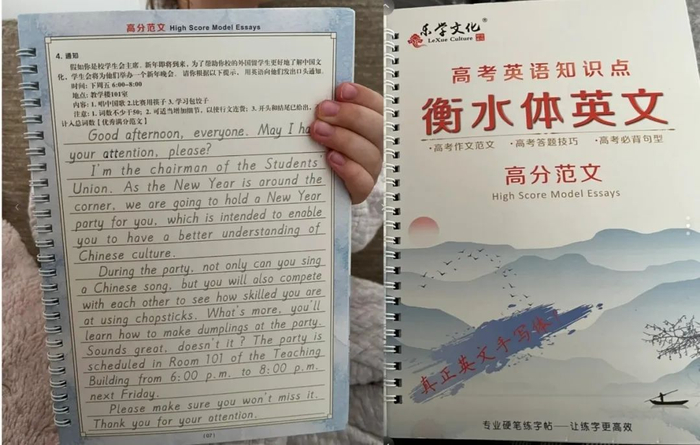 高分范文 High Score Model Essays
4. 通知
假如你是校学生会主席。新年即将到来,为了帮助你校的外国留学生更好地了解中国文
化,学生会将为他们举办一个新年晚会。请你根据以下提示,用英语向他们发出口头通知。
时间:下周五 6:00-8:00
地点:教学楼101室
内容:1. 唱中国歌 2.比赛用筷子 3. 学习包饺子
注意:1. 词数不少于50;2. 可适当增加细节,以使行文连贯;3. 开头和结尾已给出,
计入总词数【优秀满分范文】
Good afternoon, everyone. May I ha
your attention, please?
I'm the chairman of the Students
Union. As the New Year is around the
corner, we are going to hold a New Year
party for you, which is intended to enable
you to have a better understanding of
Chinese culture.
During the party, not only can you sing
a Chinese song, but you will also compete
with each other to see how skilled you are
at using chopsticks. What's more, you'll
learn how to make dumplings at the party.
Sounds great, doesn't it? The party is
scheduled in Room 101 of the Teaching
Building from 6:00 p.m. to 8:00 p.m.
next Friday.
Please make sure you won't miss it.
Thank you for your attention.
乐学文化
LeXue Culture
高考英语知识点
衡水体英文
·高考作文范文 ·高考答题技巧 ·高考必背句型
高分范文
High Score Model Essays
真正英文手写体
专业硬笔练字帖——让练字更高效